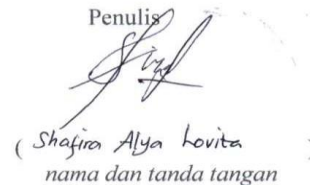 Penulis
( Shafira Alya Lovita )
nama dan tanda tangan